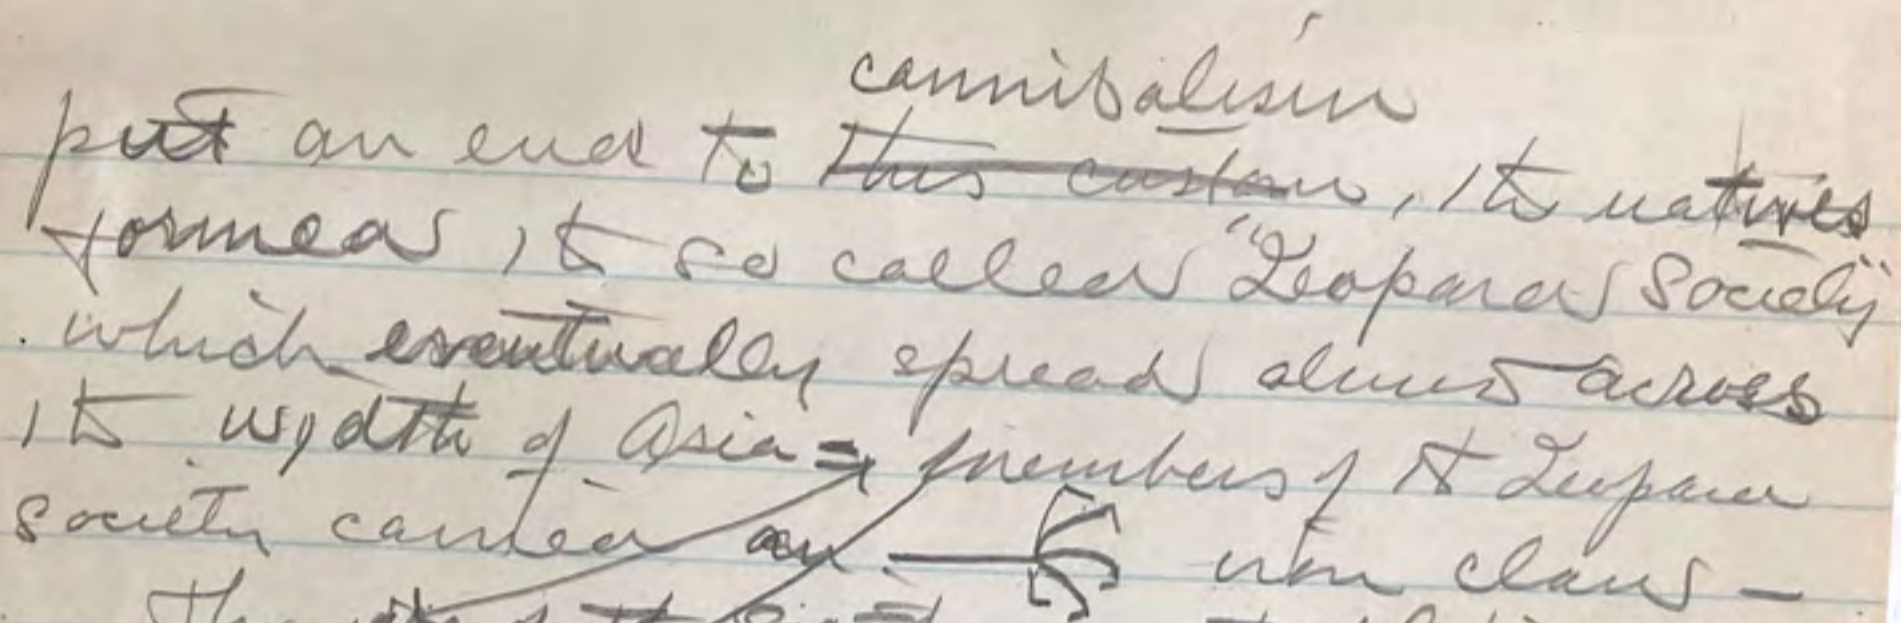 cannibalism
put an end to this custom, the natives
formed the so called "Leopard Society"
which eventually spread almost across
the wydth of Asia = members of the Leopard
society carried an iron claw -